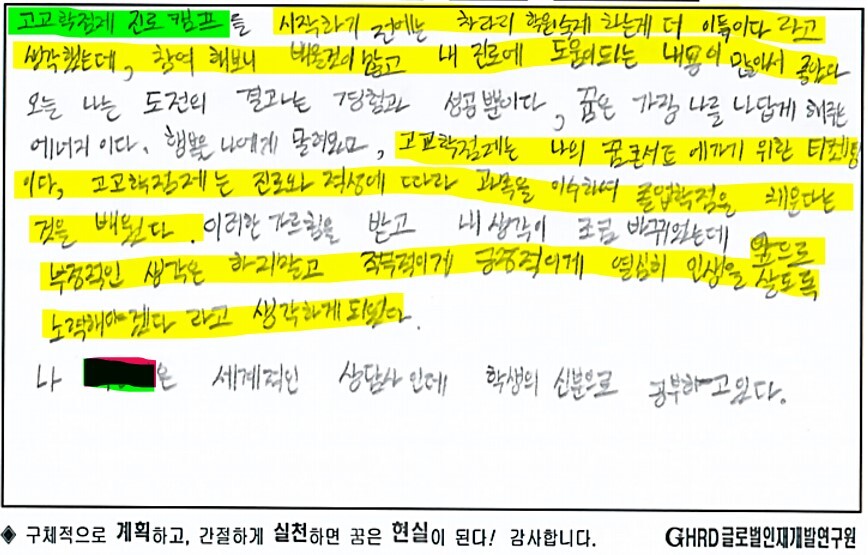 고교학점제 진로캠프를 시작하기 전에는 차라리 학원숙제 하는게 더 이득이다 라고
생각했는데, 참여 해보니 배울것이 많고 내 진로에 도움이되는 내용이 많아서 좋았다
오늘 나는 도전의 결과는 경험과 성공뿐이다, 꿈은 가장 나를 나답게 해주는
에너지이다. 행복은 나에게 달려있다, 고교학점제는 나의 꿈콘서트에가기 위한 티켓팅
이다, 고교학점제는 진로와 적성에 따라 과목을 이수하여 졸업학점을 채운다는
것을 배웠다. 이러한 가르침을 받고 내생각이 조금 바뀌었는데 앞으로
부정적인 생각은 하지말고 적극적이게 긍정적이게 열심히 인생을 살도록
노력해야겠다 라고 생각하게되었다.
나 은 세계적인 상담사인데 학생의 신분으로 공부하고있다.
◈ 구체적으로 계획하고, 간절하게 실천하면 꿈은 현실이 된다! 감사합니다. GHRD글로벌인재개발연구원